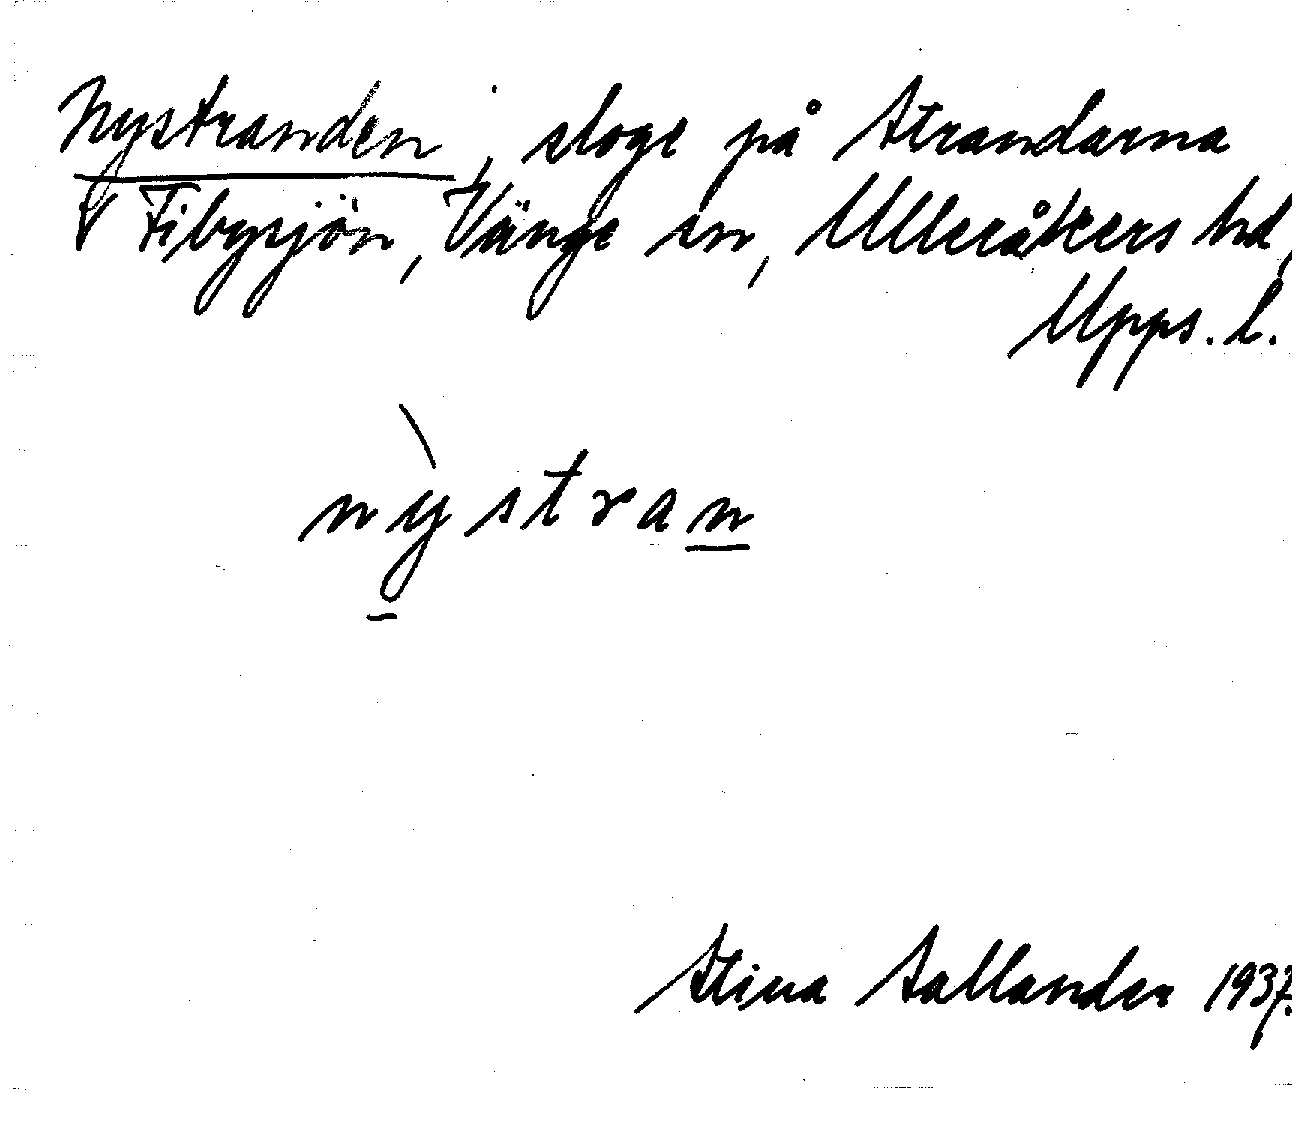 Nystranden, sloge på Strandarna
v Fibysjön, Vänge sn, Ulleråkers hd,
Upps. l.
nỳstran
Stina Sallander 1937.